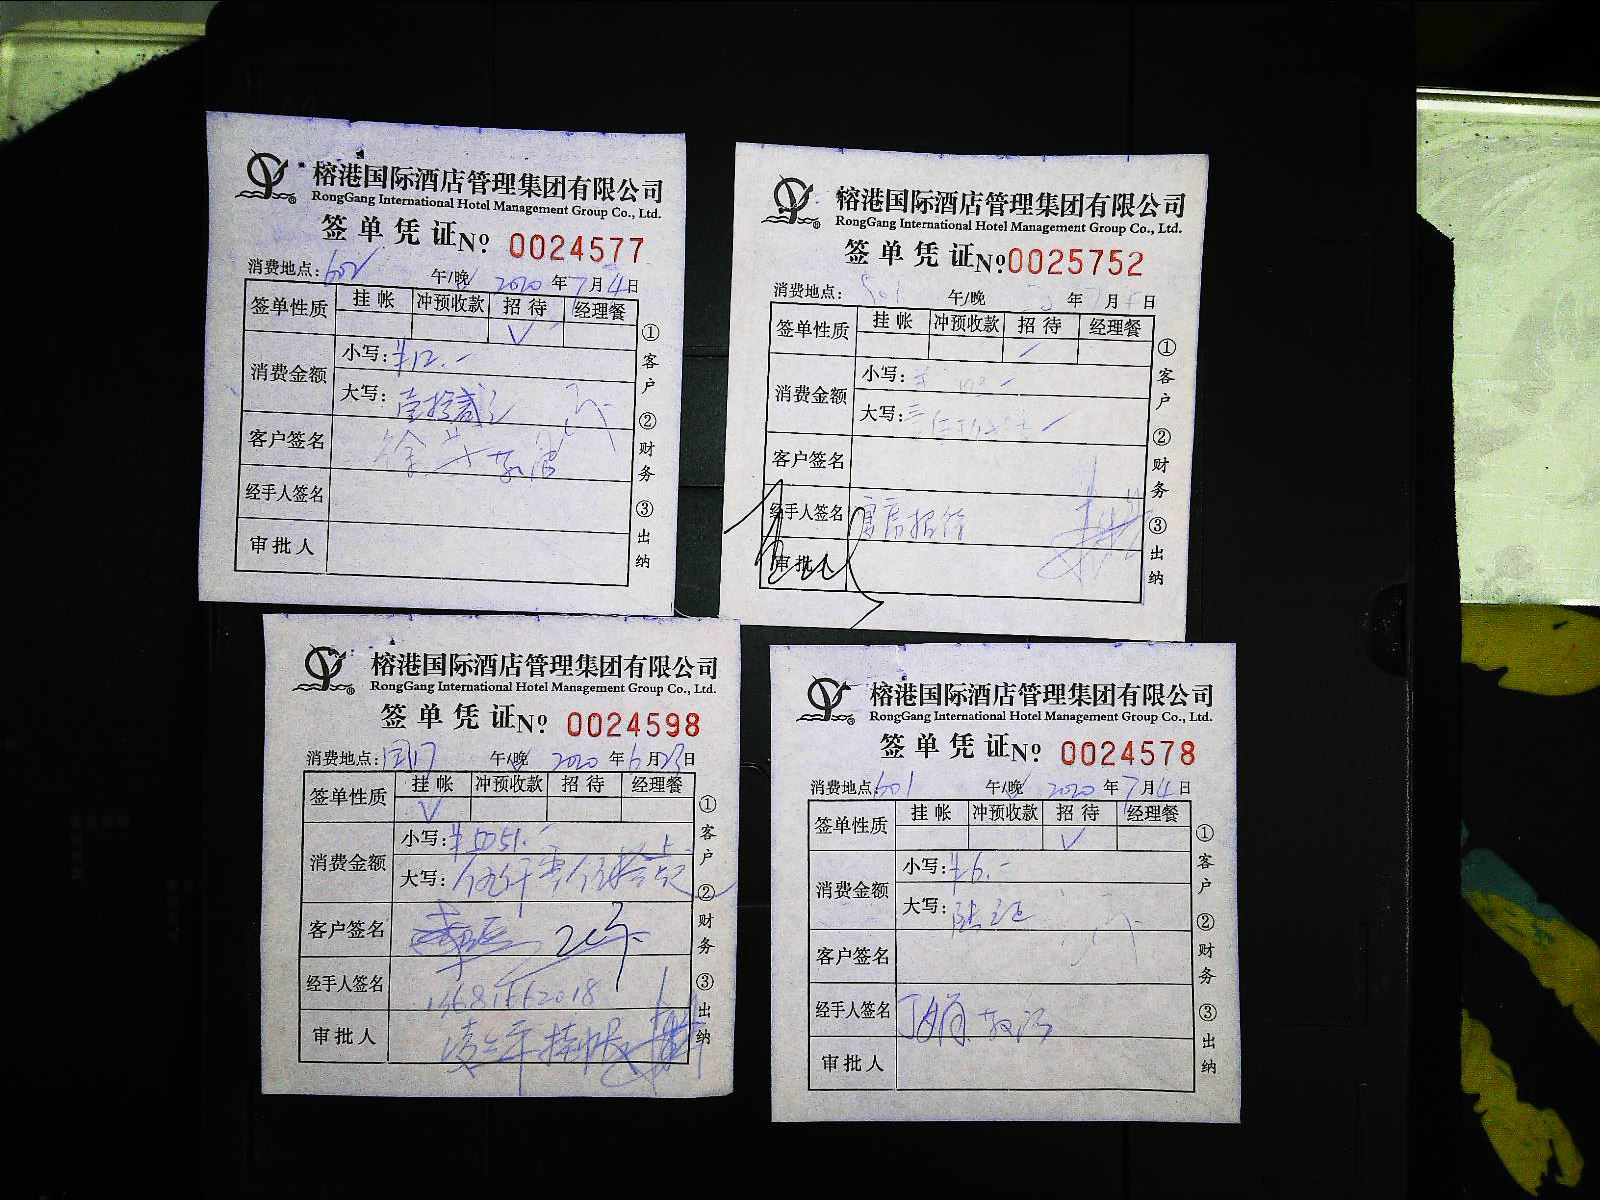 榕港国际酒店管理集团有限公司
RongGang International Hotel Management Group Co., Ltd.
签单凭证 № 0024577
消费地点: 602 午/晚 2020年7月4日
签单性质 挂帐 冲预收款 招待 经理餐
√
消费金额 小写: ¥12.-
大写: 壹拾贰元
客户签名
经手人签名
审批人
① 客户 ② 财务 ③ 出纳
榕港国际酒店管理集团有限公司
RongGang International Hotel Management Group Co., Ltd.
签单凭证 № 0025752
消费地点: 501 午/晚 年7月 日
签单性质 挂帐 冲预收款 招待 经理餐
消费金额 小写:
大写:
客户签名
经手人签名 招待
审批人
① 客户 ② 财务 ③ 出纳
榕港国际酒店管理集团有限公司
RongGang International Hotel Management Group Co., Ltd.
签单凭证 № 0024598
消费地点: 午/晚 2020年6月23日
签单性质 挂帐 冲预收款 招待 经理餐
√
消费金额 小写: ¥5051.-
大写: 伍仟零伍拾
客户签名
经手人签名
审批人 挂帐
① 客户 ② 财务 ③ 出纳
榕港国际酒店管理集团有限公司
RongGang International Hotel Management Group Co., Ltd.
签单凭证 № 0024578
消费地点: 601 午/晚 2020年7月4日
签单性质 挂帐 冲预收款 招待 经理餐
√
消费金额 小写: ¥6.-
大写: 陆元正
客户签名
经手人签名
审批人
① 客户 ② 财务 ③ 出纳